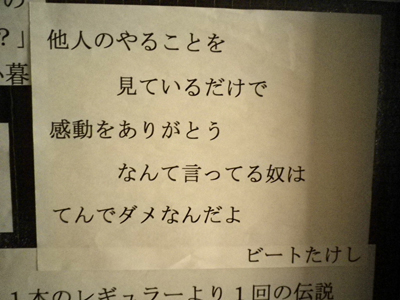 の
？」
暮
他人のやることを
見ているだけで
感動をありがとう
なんて言ってる奴は
てんでダメなんだよ
ビートたけし
１本のレギュラーより１回の伝説